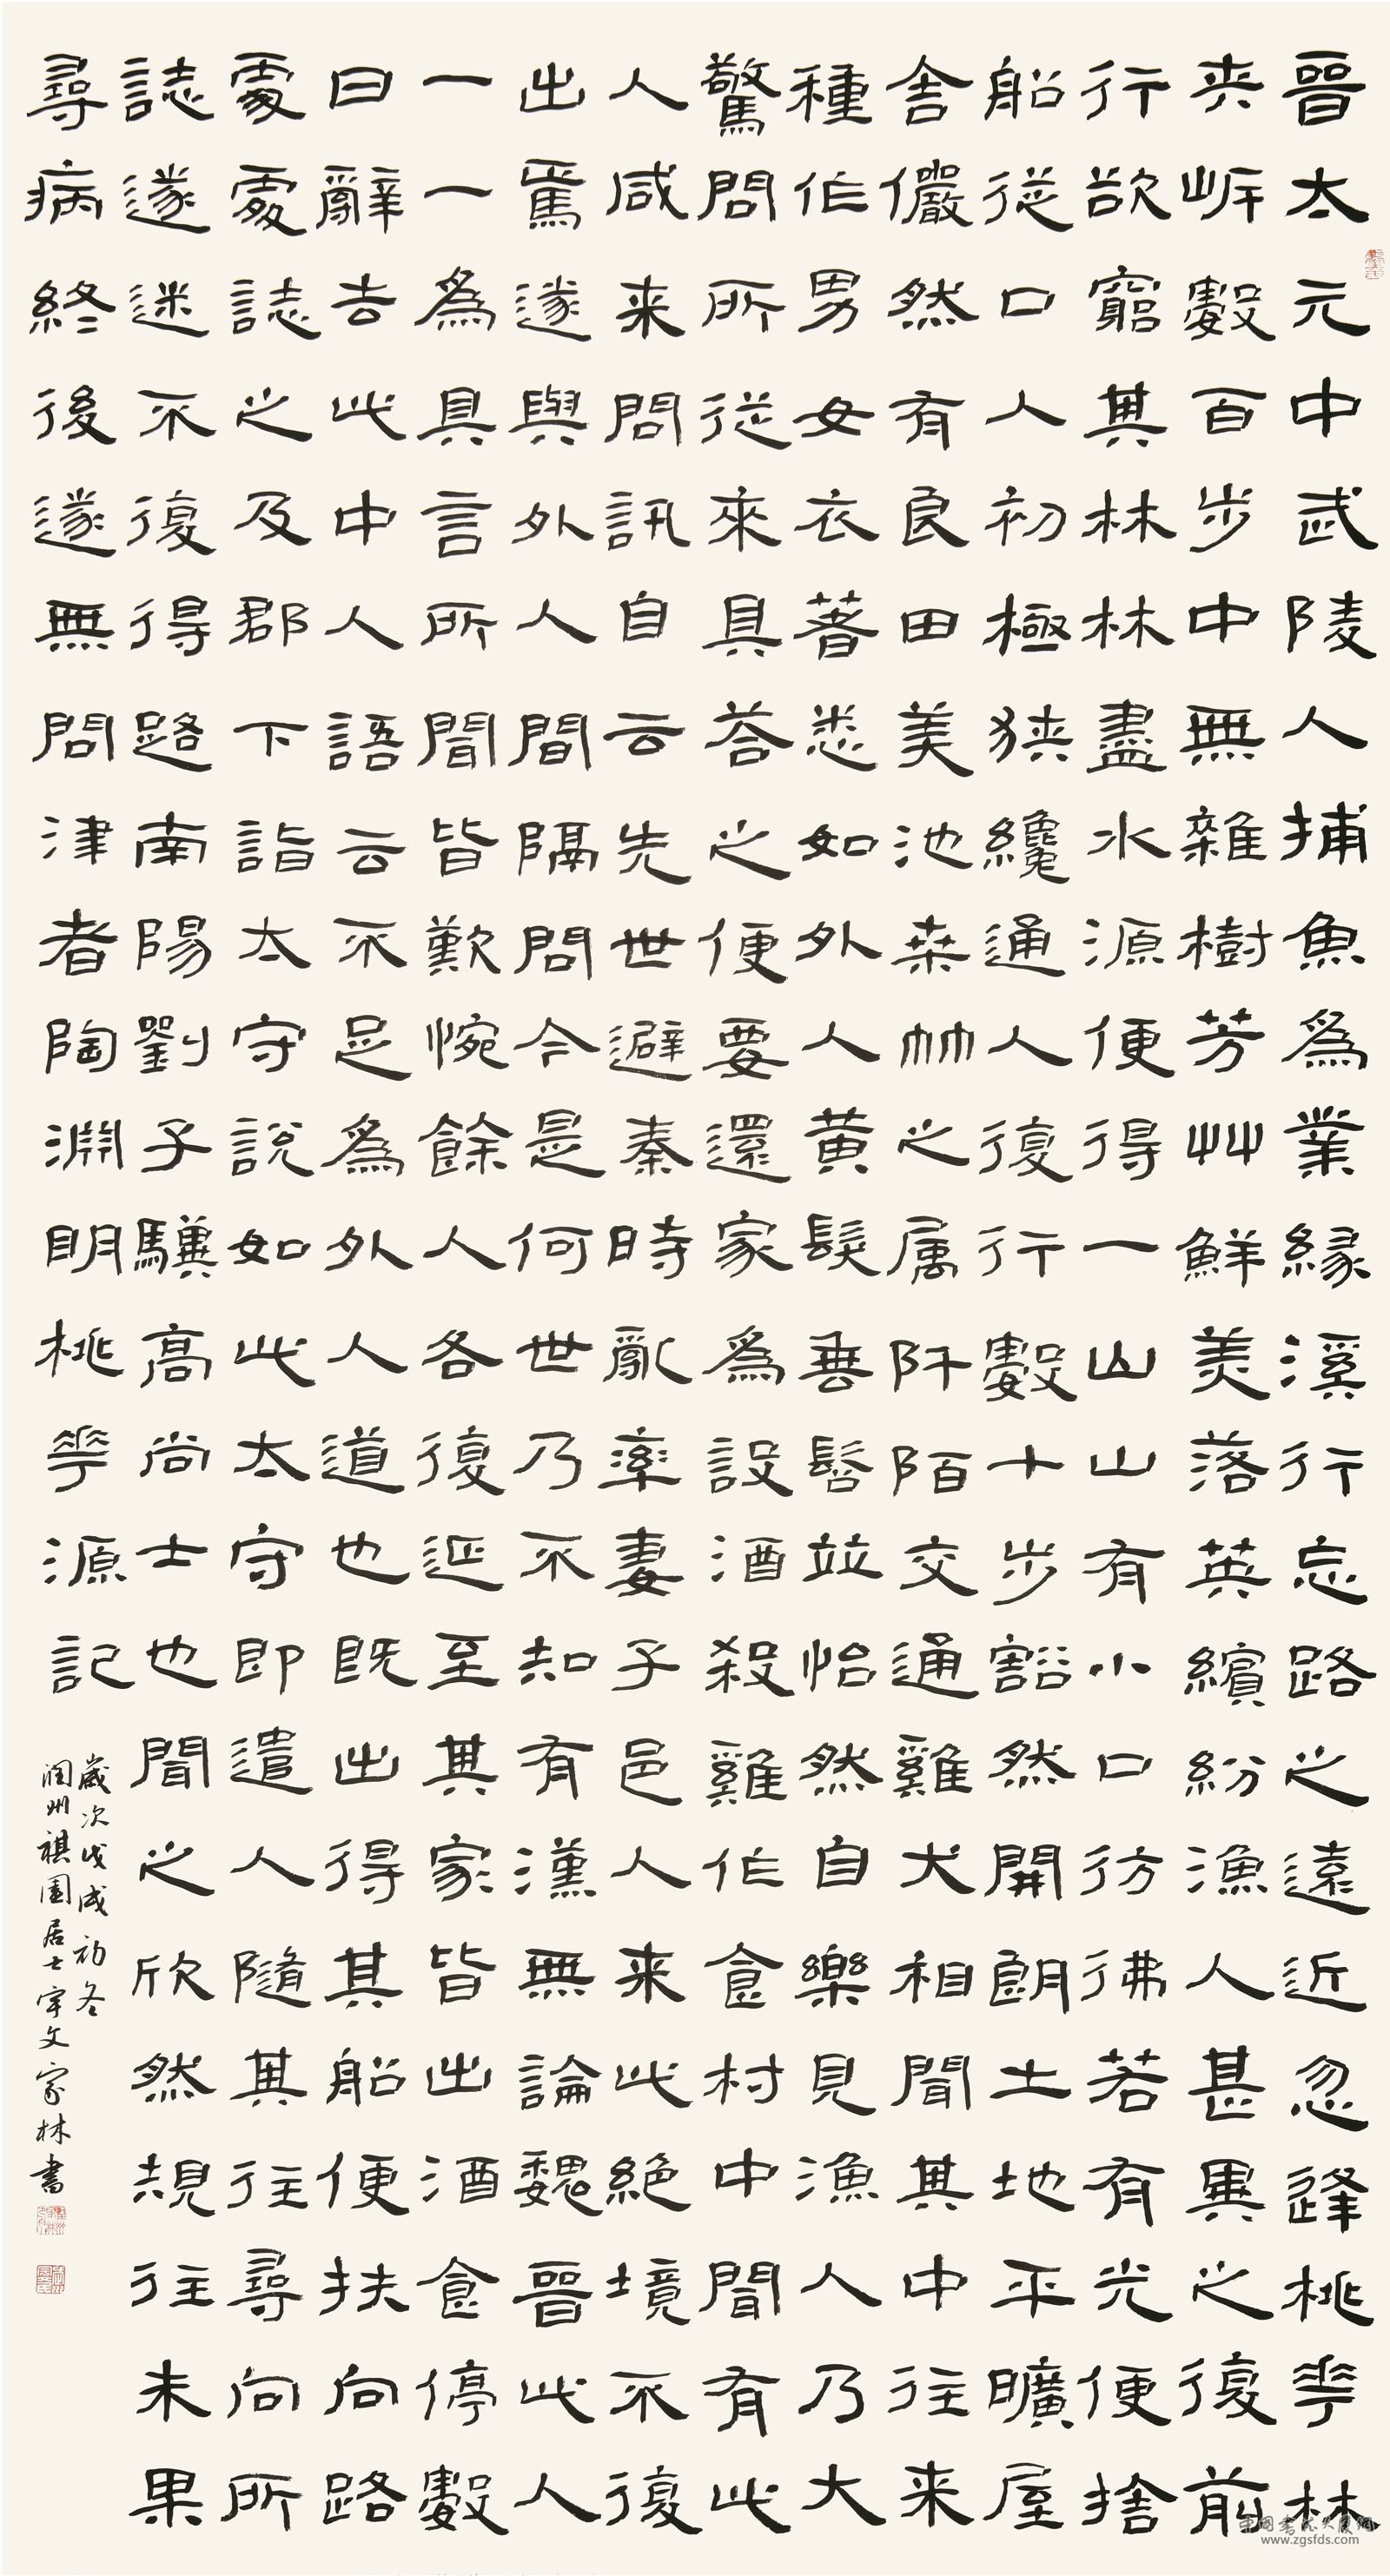 晉太元中武陵人捕魚為業緣溪行忘路之遠近忽逢桃華林
夾岸數百步中無雜樹芳艸鮮美落英繽紛漁人甚異之復前
行欲窮其林林盡水源便得一山山有小口彷彿若有光便捨
船從口入初極狹纔通人復行數十步豁然開朗土地平曠屋
舍儼然有良田美池桑竹之属阡陌交通雞犬相聞其中往来
種作男女衣著悉如外人黃髮垂髫並怡然自樂見漁人乃大
驚問所從來具答之便要還家為設酒殺雞作食村中聞有此
人咸来問訊自云先世避秦時亂率妻子邑人来此絕境不復
出焉遂與外人間隔問今是何世乃不知有漢無論魏晉此人
一一為具言所聞皆歎惋餘人各復延至其家皆出酒食停數
日辭去此中人語云不足為外人道也既出得其船便扶向路
處處誌之及郡下詣太守說如此太守即遣人隨其往尋向所
誌遂迷不復得路南陽劉子驥高尚士也聞之欣然規往未果
尋病終後遂無問津者陶淵明桃華源記
歲次戊戌初冬
潤州祺園居士宇文家林書
www.zgsfds.com